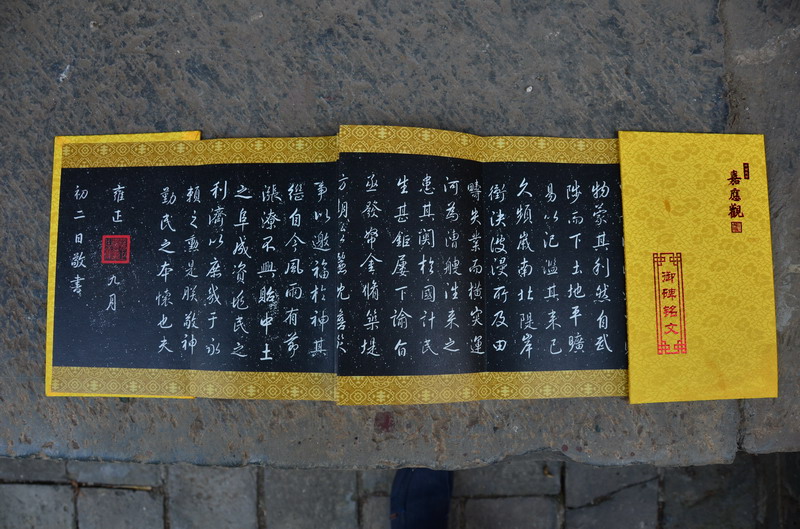 嘉應觀
御碑銘文
物蒙其利然自武
陟而下土地平曠
易以氾濫其来已
久頻歲南北隄岸
衝決波浸所及田
疇失業而横突運
河為漕艘往来之
患其関於國計民
生甚鉅屢下諭旨
丞發帑金脩築堤
事以邀福於神其
繼自今風雨有節
漲潦不興貽中土
之阜成資兆民之
利濟以庶幾于永
賴之勳是朕敬神
勤民之本懷也夫
雍正 九月
初二日敬書